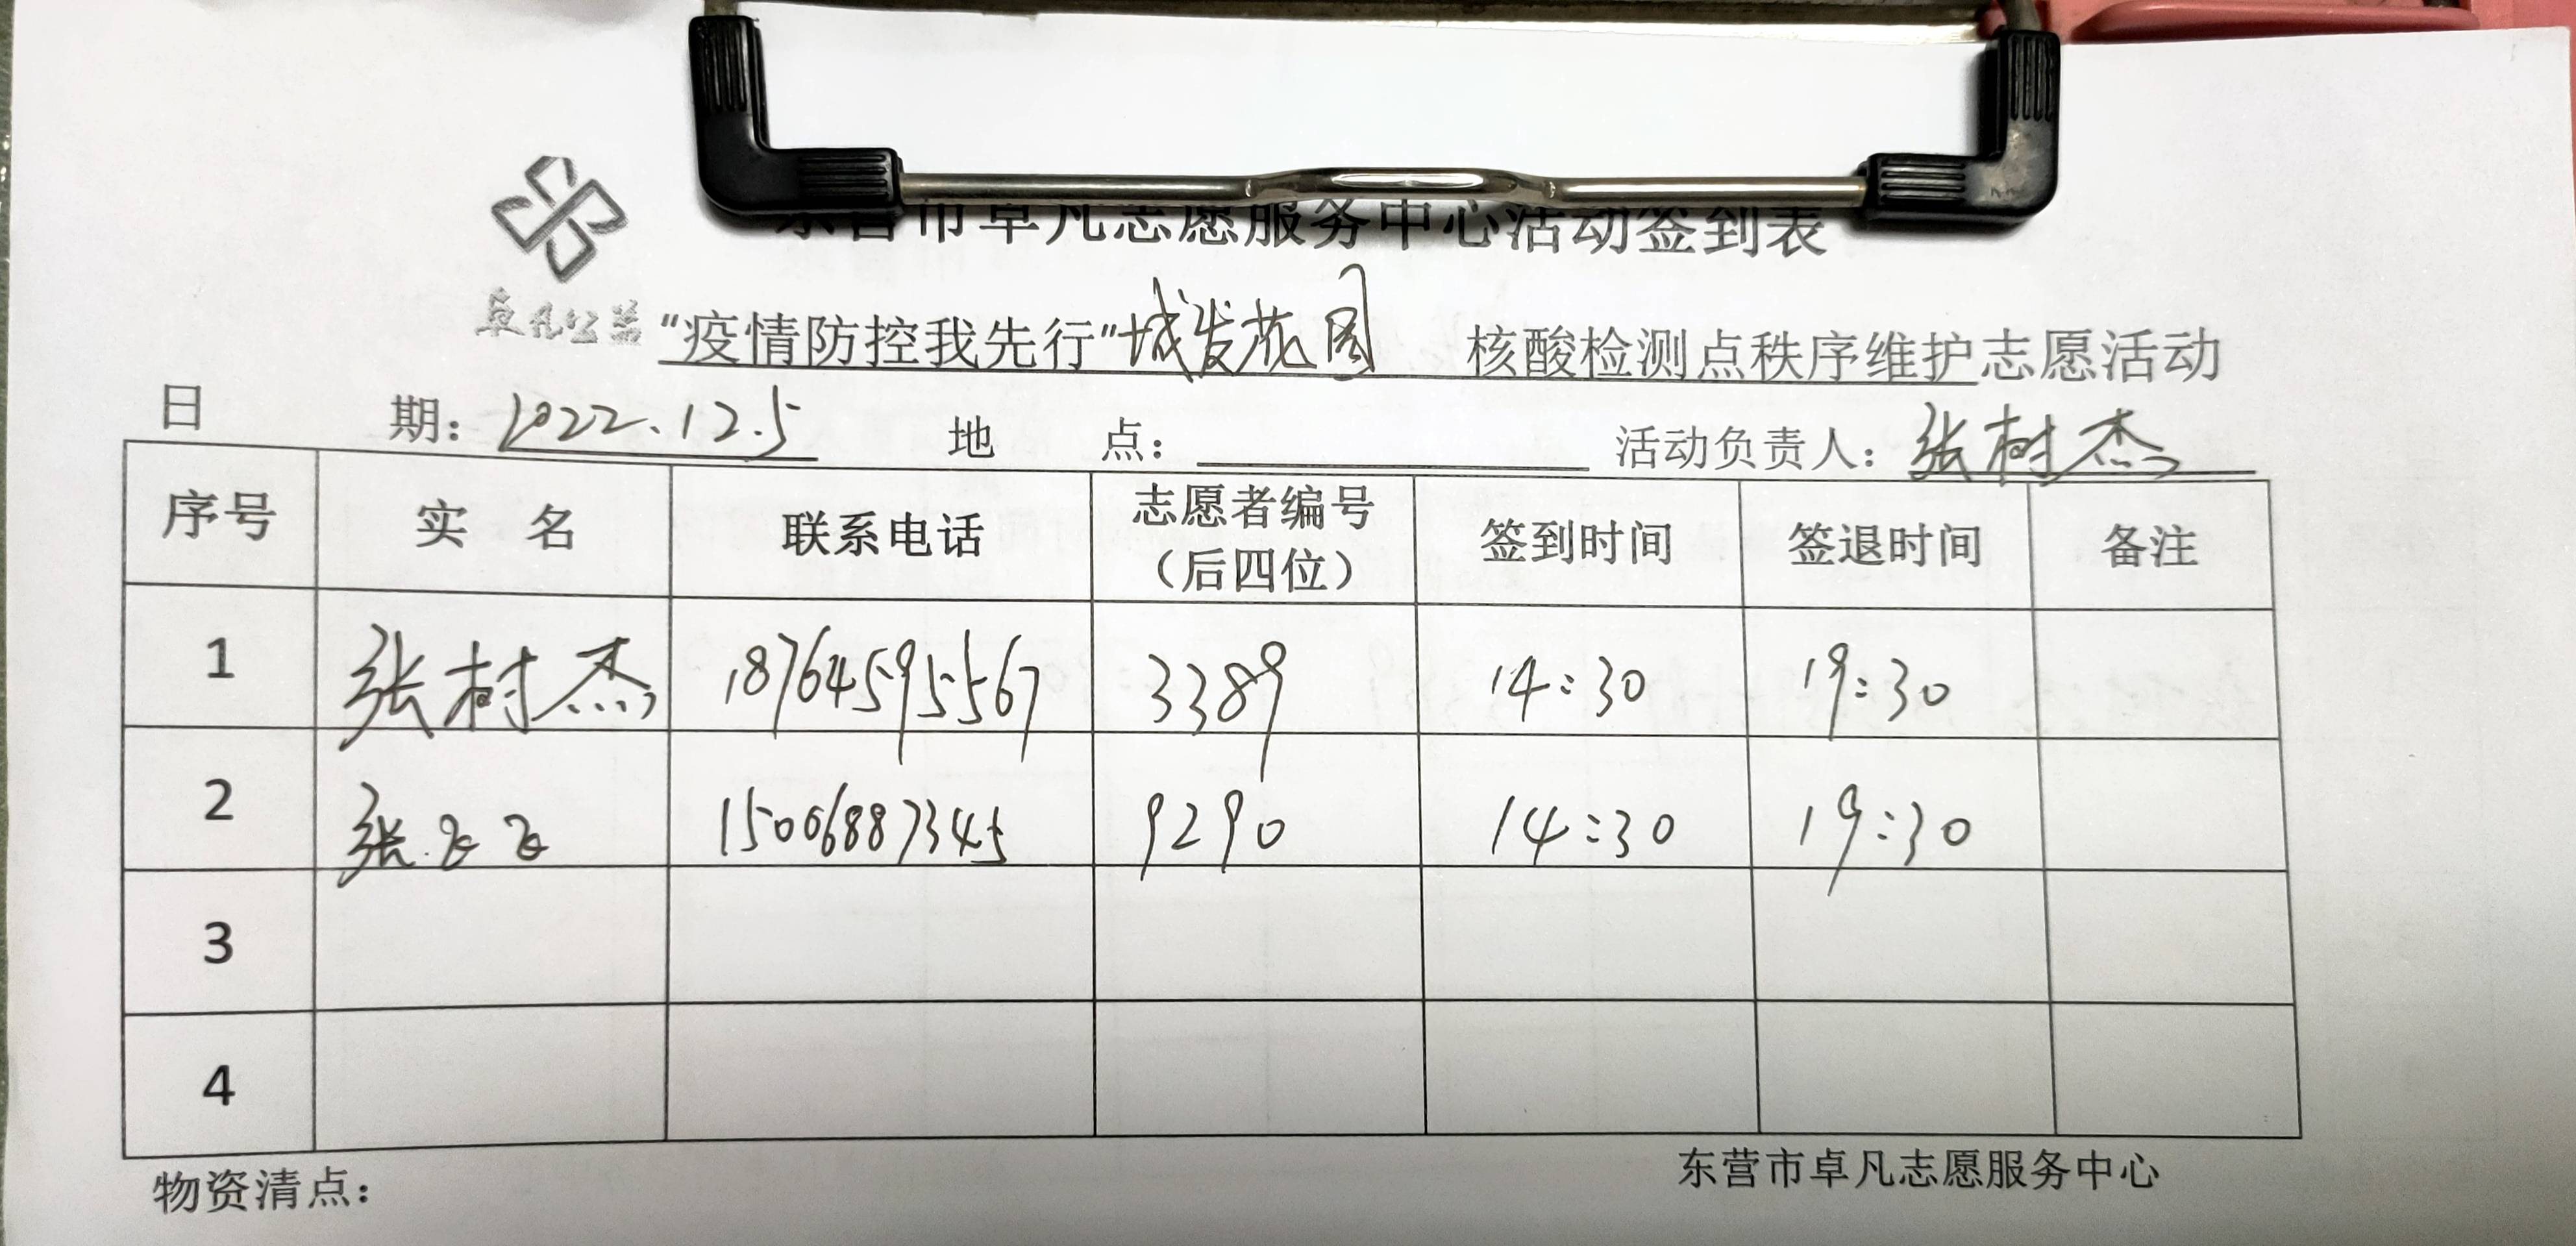 东营市卓凡志愿服务中心活动签到表
卓凡公益
"疫情防控我先行"城发花园 核酸检测点秩序维护志愿活动
日 期：2022.12.5 地 点： 活动负责人：张树杰
序号 实 名 联系电话 志愿者编号（后四位） 签到时间 签退时间 备注
1 张树杰 18764595567 3389 14:30 19:30
2 张飞飞 15006887345 9290 14:30 19:30
3
4
物资清点： 东营市卓凡志愿服务中心